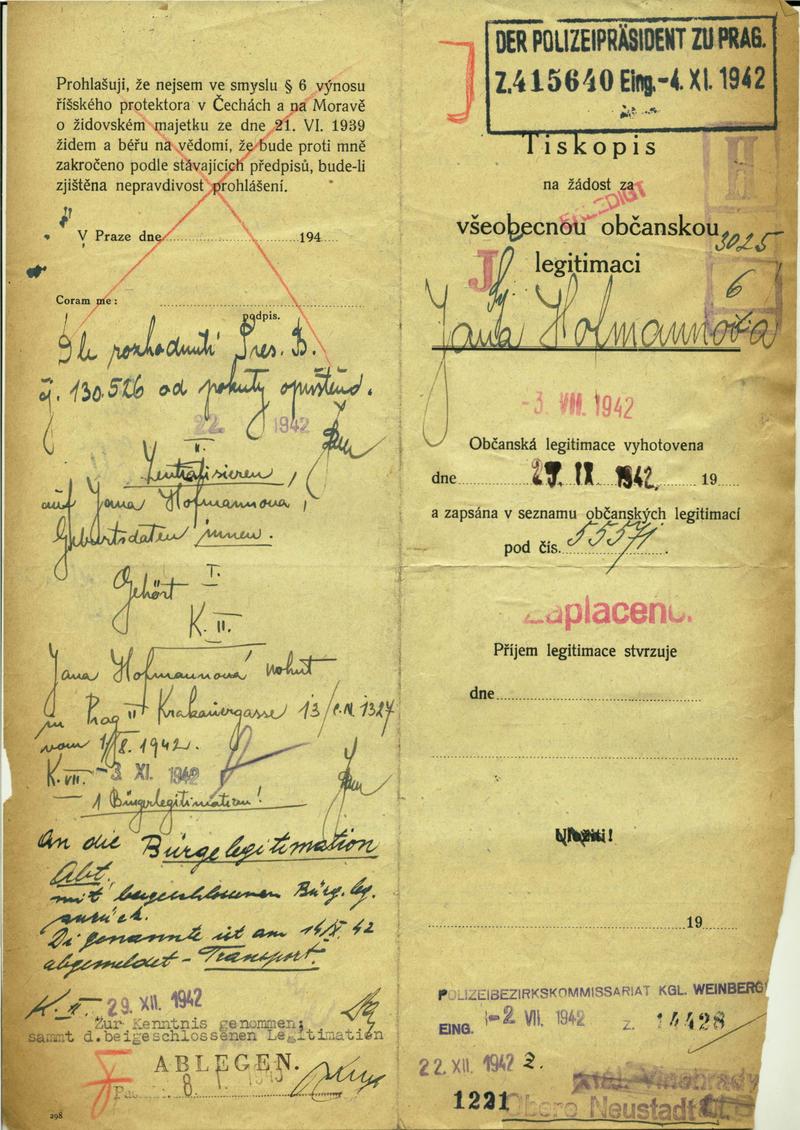 Prohlašuji, že nejsem ve smyslu § 6 výnosu
říšského protektora v Čechách a na Moravě
o židovském majetku ze dne 21. VI. 1939
židem a béřu na vědomí, že bude proti mně
zakročeno podle stávajících předpisů, bude-li
zjištěna nepravdivost prohlášení.
V Praze dne 194
Coram me:
podpis.
Dle rozhodnutí Pres. B.
čj. 130.526 od pokuty upuštěno.
22. 1942
II.
Zentralisieren,
auf Jana Hofmannova,
Geburtsdaten innen.
Gehört I.
K. II.
Jana Hofmannová wohnt
in Prag II Krakauergasse 13/c.N. 1327
vom 1/8. 1942.
K. VII. -3. XI. 1942
1 Bürgerlegitimation!
An die Bürgelegitimation
Abt.
mit beigeschlossenen Bürg. leg.
zurück.
Di genannte ist am
abgemeldet - Transport.
K. II. 29. XII. 1942
Zur Kenntnis genommen;
sammt d.beigeschlossenen Legitimation
ABLEGEN.
8. I. 1943
298
DER POLIZEIPRÄSIDENT ZU PRAG.
Z. 415640 Eing. -4. XI. 1942
Tiskopis
na žádost za
ERLEDIGT
všeobecnou občanskou
3025
J
legitimaci
6
H
Jana Hofmannová
-3. VIII. 1942
Občanská legitimace vyhotovena
dne IX 1942. 19
a zapsána v seznamu občanských legitimací
pod čís. 55571.
Zaplaceno.
Příjem legitimace stvrzuje
dne
19
POLIZEIBEZIRKSKOMMISSARIAT KGL. WEINBERGE
EING. -2. VII. 1942 Z. 14428
22. XII. 1942 2.
Král. Vinohrady
1221 Obere Neustadt